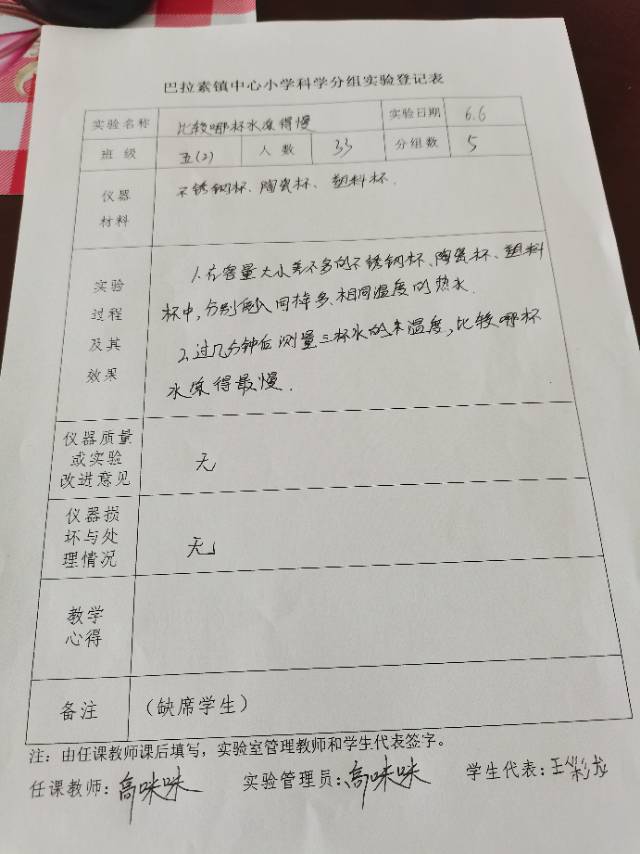 巴拉素镇中心小学科学分组实验登记表
实验名称 比较哪杯水凉得慢 实验日期 6.6
班级 五(2) 人数 33 分组数 5
仪器材料 不锈钢杯、陶瓷杯、塑料杯.
实验过程及其效果
1.在容量大小差不多的不锈钢杯、陶瓷杯、塑料
杯中,分别倒入同样多、相同温度的热水.
2.过几分钟后测量三杯水的温度,比较哪杯
水凉得最慢.
仪器质量
或实验
改进意见 无
仪器损
坏与处
理情况 无
教学
心得
备注 (缺席学生)
注:由任课教师课后填写,实验室管理教师和学生代表签字。
任课教师:高咪咪 实验管理员:高咪咪 学生代表:王彩龙